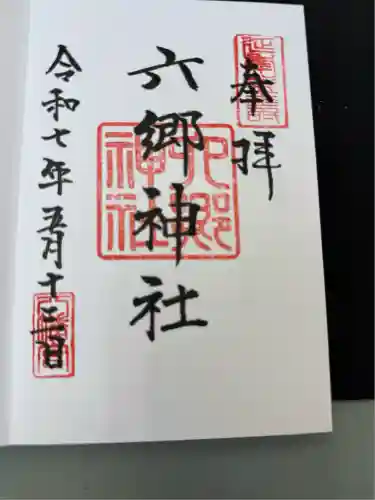 奉拝
六郷神社
六郷神社
令和七年五月十三日